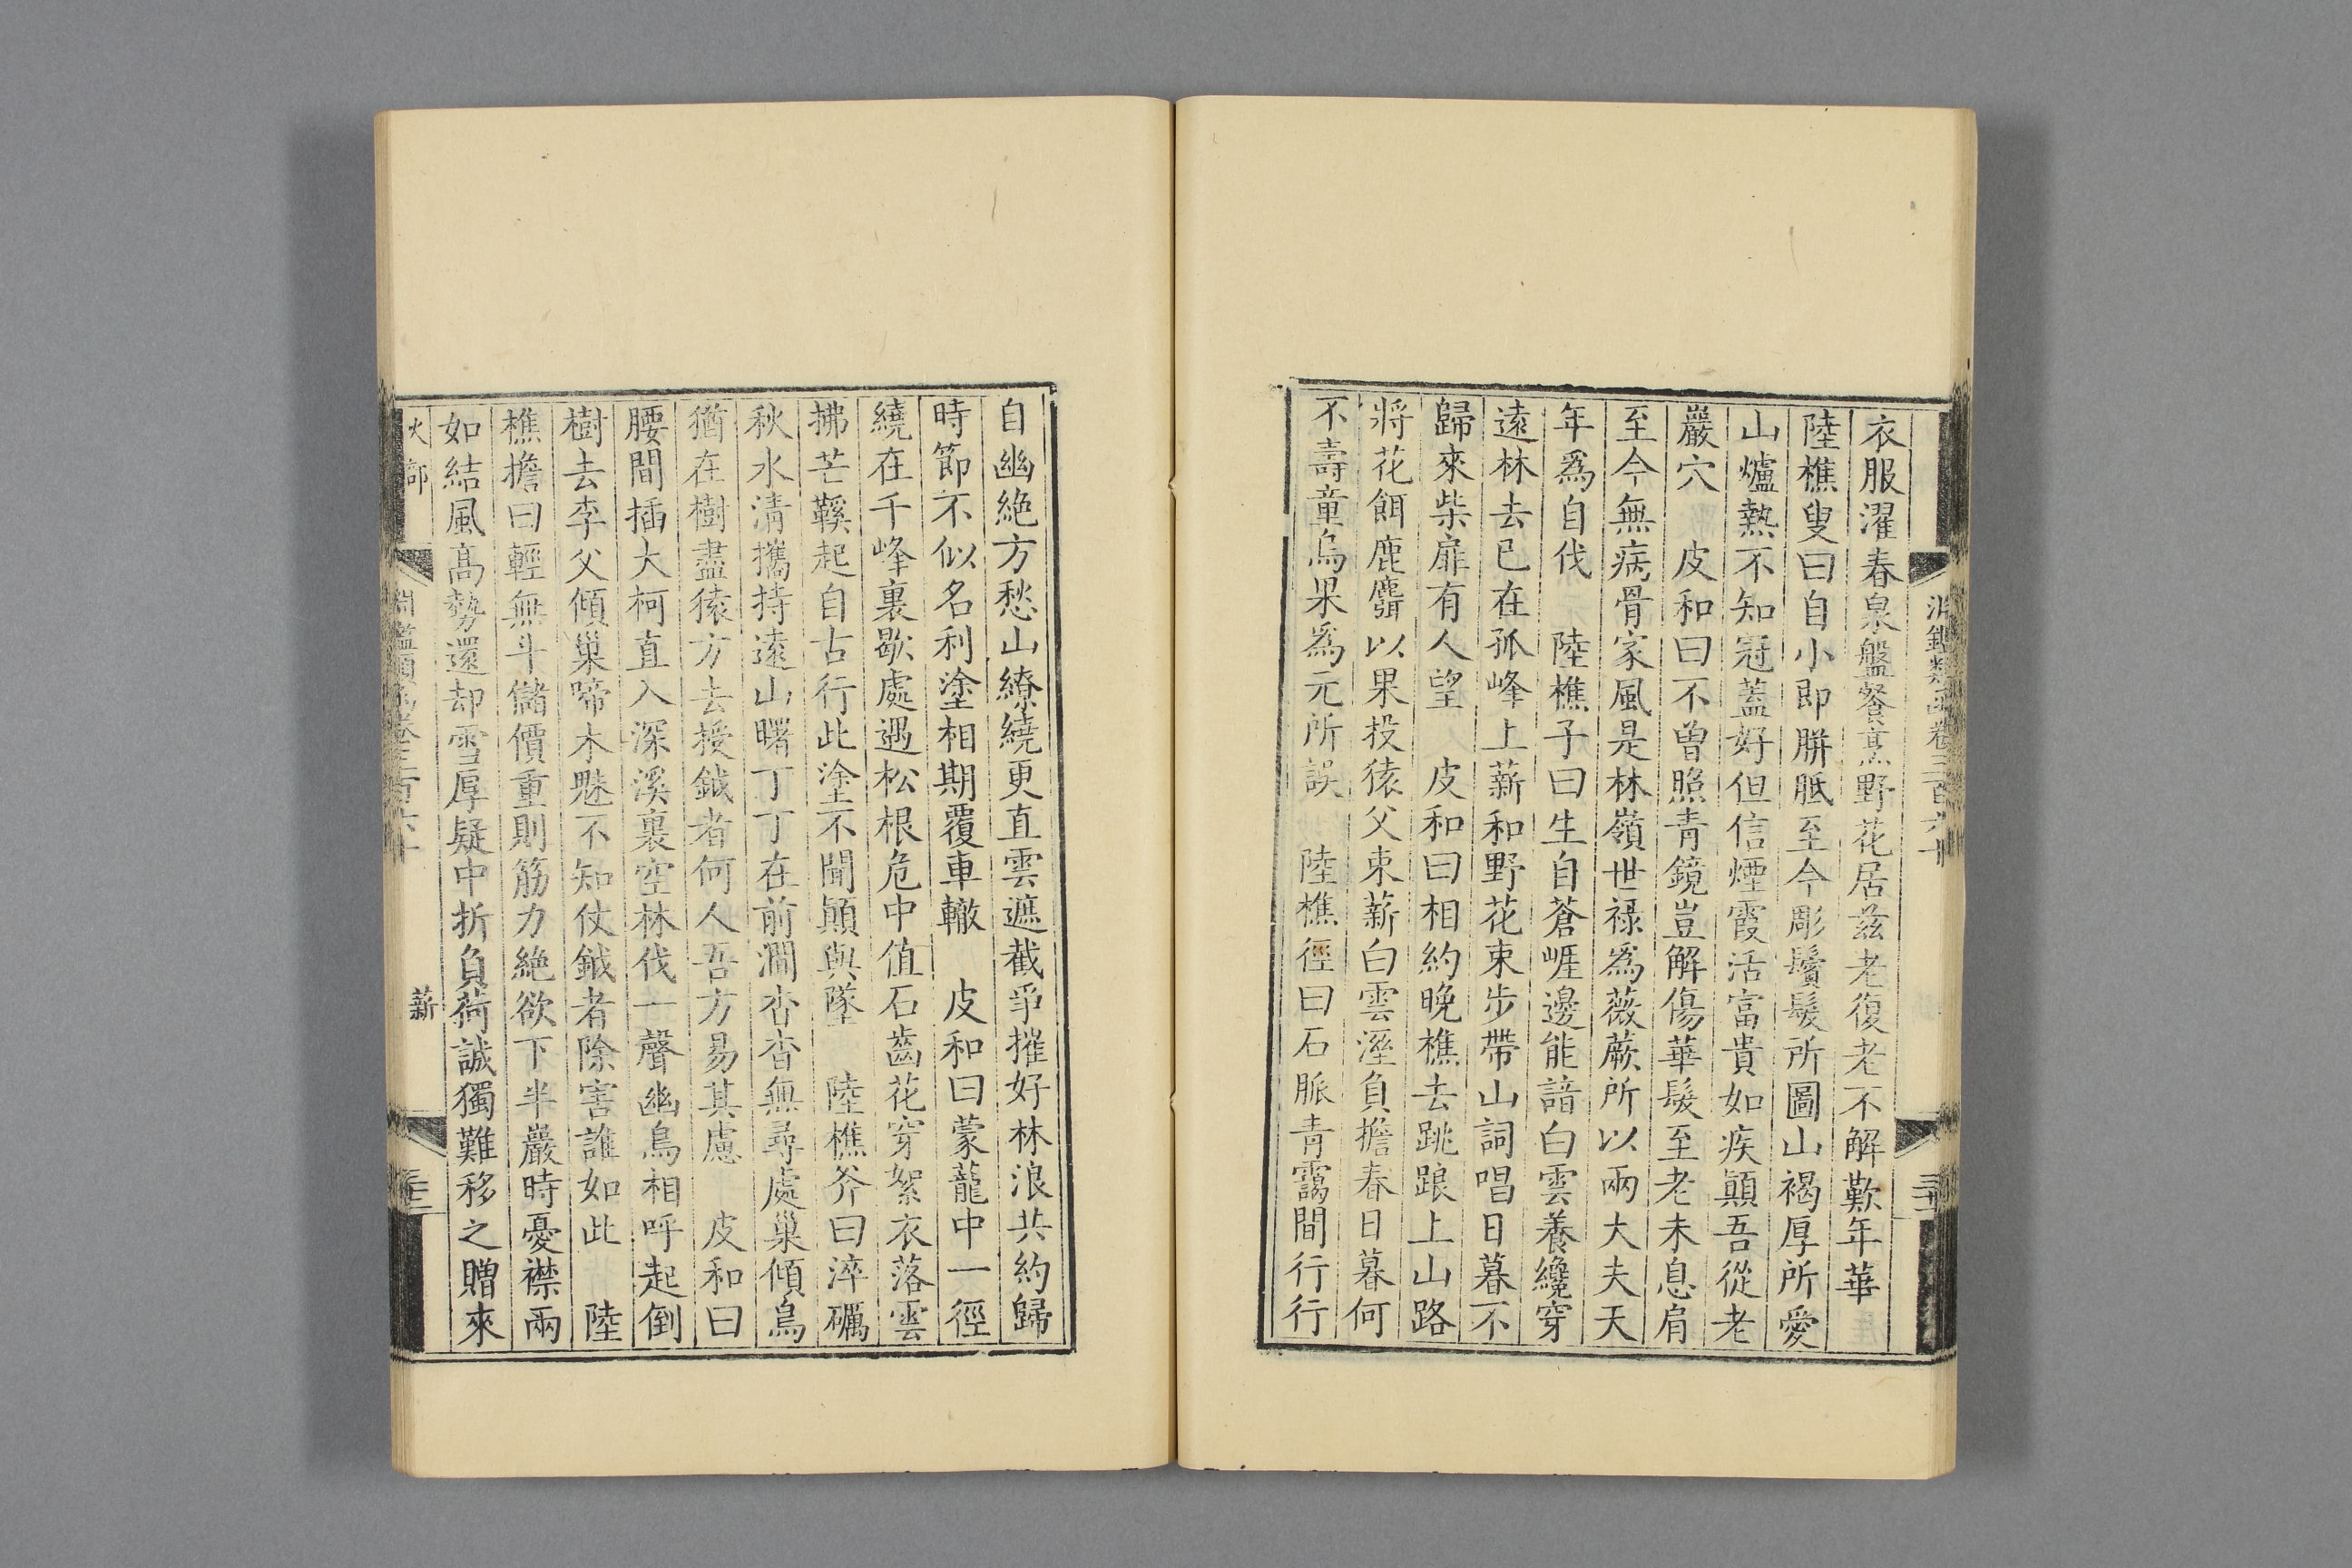 衣服濯春泉盤餐烹野花居兹老復老不解歎年華
陸樵叟曰自小即胼胝至今彫鬢髮所圖山褐厚所愛
山爐熱不知冠蓋好但信煙霞活富貴如疾顛吾從老
巖穴　皮和曰不曾照青鏡豈解傷華髮至老未息肩
至今無病骨家風是林嶺世祿爲薇蕨所以兩大夫天
年爲自伐　陸樵子曰生自蒼崕邊能諳白雲養纔穿
遠林去已在孤峰上薪和野花束步帶山詞唱日暮不
歸來柴扉有人望　皮和曰相約晚樵去跳踉上山路
將花餌鹿麛以果投猿父束薪白雲溼負擔春日暮何
不壽童烏果爲元所誤　陸樵徑曰石脈青靄間行行
自幽絶方愁山繚繞更直雲遮截爭摧好林浪共約歸
時節不似名利塗相期覆車轍　皮和曰蒙蘢中一徑
繞在千峰裏歇處遇松根危中值石齒花穿絮衣落雲
拂芒鞵起自古行此塗不聞顛與墜　陸樵斧曰淬礪
秋水清攜持遠山曙丁丁在前澗杳杳無尋處巢傾鳥
猶在樹盡猿方去授鉞者何人吾方易其慮　皮和曰
腰間插大柯直入深溪裏空林伐一聲幽鳥相呼起倒
樹去李父傾巢啼木魅不知仗鉞者除害誰如此　陸
樵擔曰輕無斗儲價重則筋力絶欲下半巖時憂襟兩
如結風高勢還却雪厚疑中折負荷誠獨難移之贈來
火部　淵鑑類函卷三百六十　薪